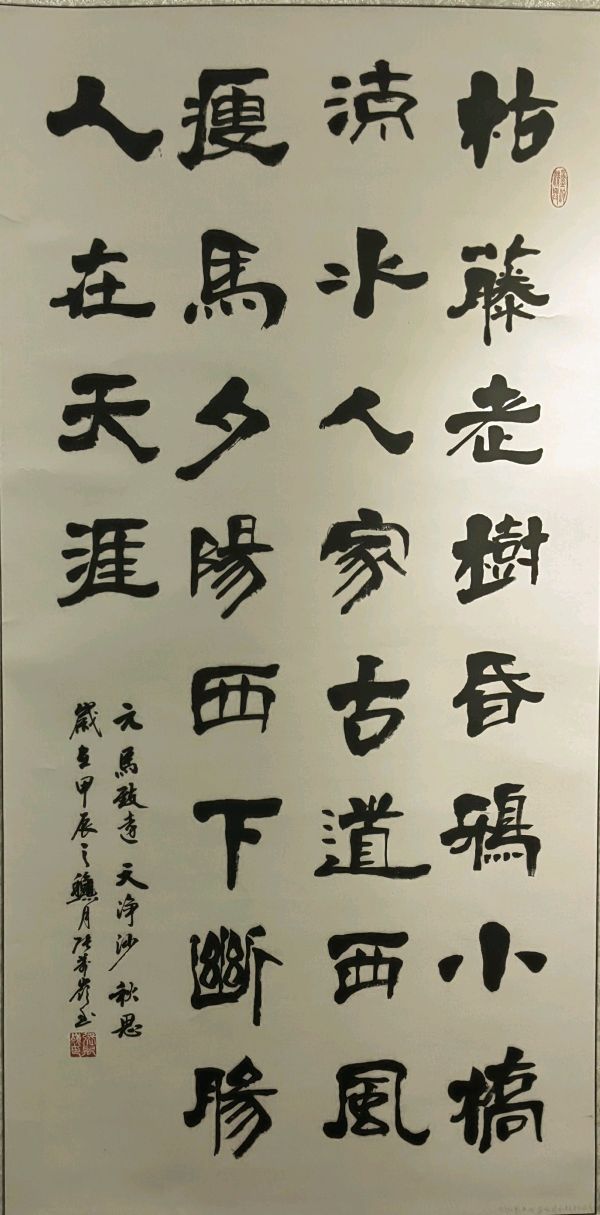 枯藤老樹昏鴉小橋
流水人家古道西風
瘦馬夕陽西下斷腸
人在天涯
元馬致遠天净沙秋思
歲在甲辰之月